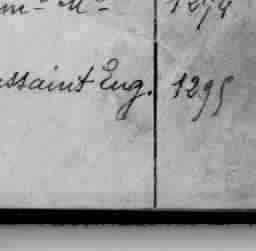 m- M- 1294
ussaint Eug. 1295